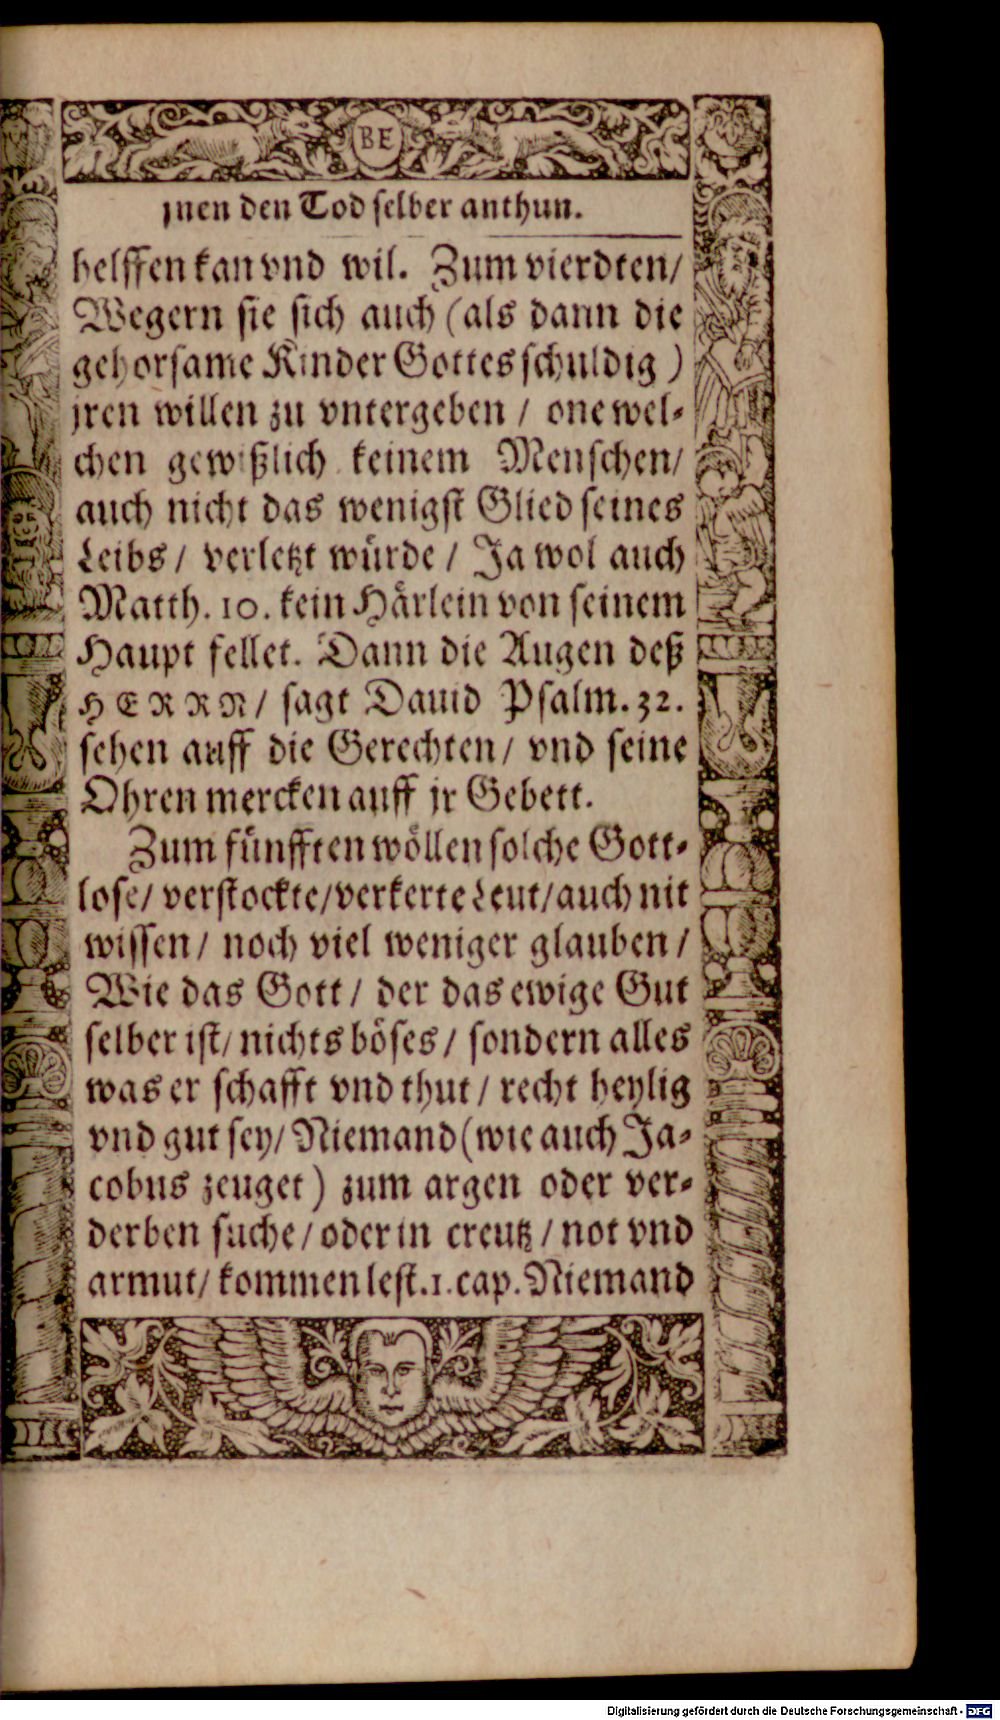 BE
jnen den Tod selber anthun.
helffen kan vnd wil. Zum vierdten/
Wegern sie sich auch (als dann die
gehorsame Kinder Gottes schuldig)
jren willen zu vntergeben / one wel-
chen gewißlich keinem Menschen/
auch nicht das wenigst Glied seines
Leibs / verletzt würde / Ja wol auch
Matth. 10. kein Härlein von seinem
Haupt fellet. Dann die Augen deß
HERRN / sagt Dauid Psalm. 32.
sehen auff die Gerechten / vnd seine
Ohren mercken auff jr Gebett.
Zum fünfften wöllen solche Gott-
lose / verstockte / verkerte Leut / auch nit
wissen / noch viel weniger glauben /
Wie das Gott / der das ewige Gut
selber ist / nichts böses / sondern alles
was er schafft vnd thut / recht heylig
vnd gut sey / Niemand (wie auch Ja-
cobus zeuget) zum argen oder ver-
derben suche / oder in creutz / not vnd
armut / kommen lest. 1. cap. Niemand
Digitalisierung gefördert durch die Deutsche Forschungsgemeinschaft - DFG